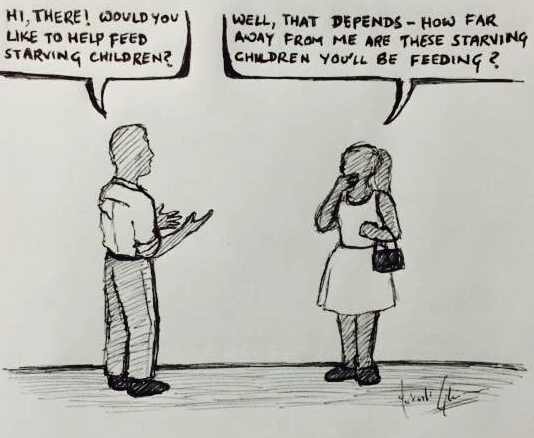 HI, THERE! WOULD YOU
LIKE TO HELP FEED
STARVING CHILDREN?
WELL, THAT DEPENDS - HOW FAR
AWAY FROM ME ARE THESE STARVING
CHILDREN YOU'LL BE FEEDING?